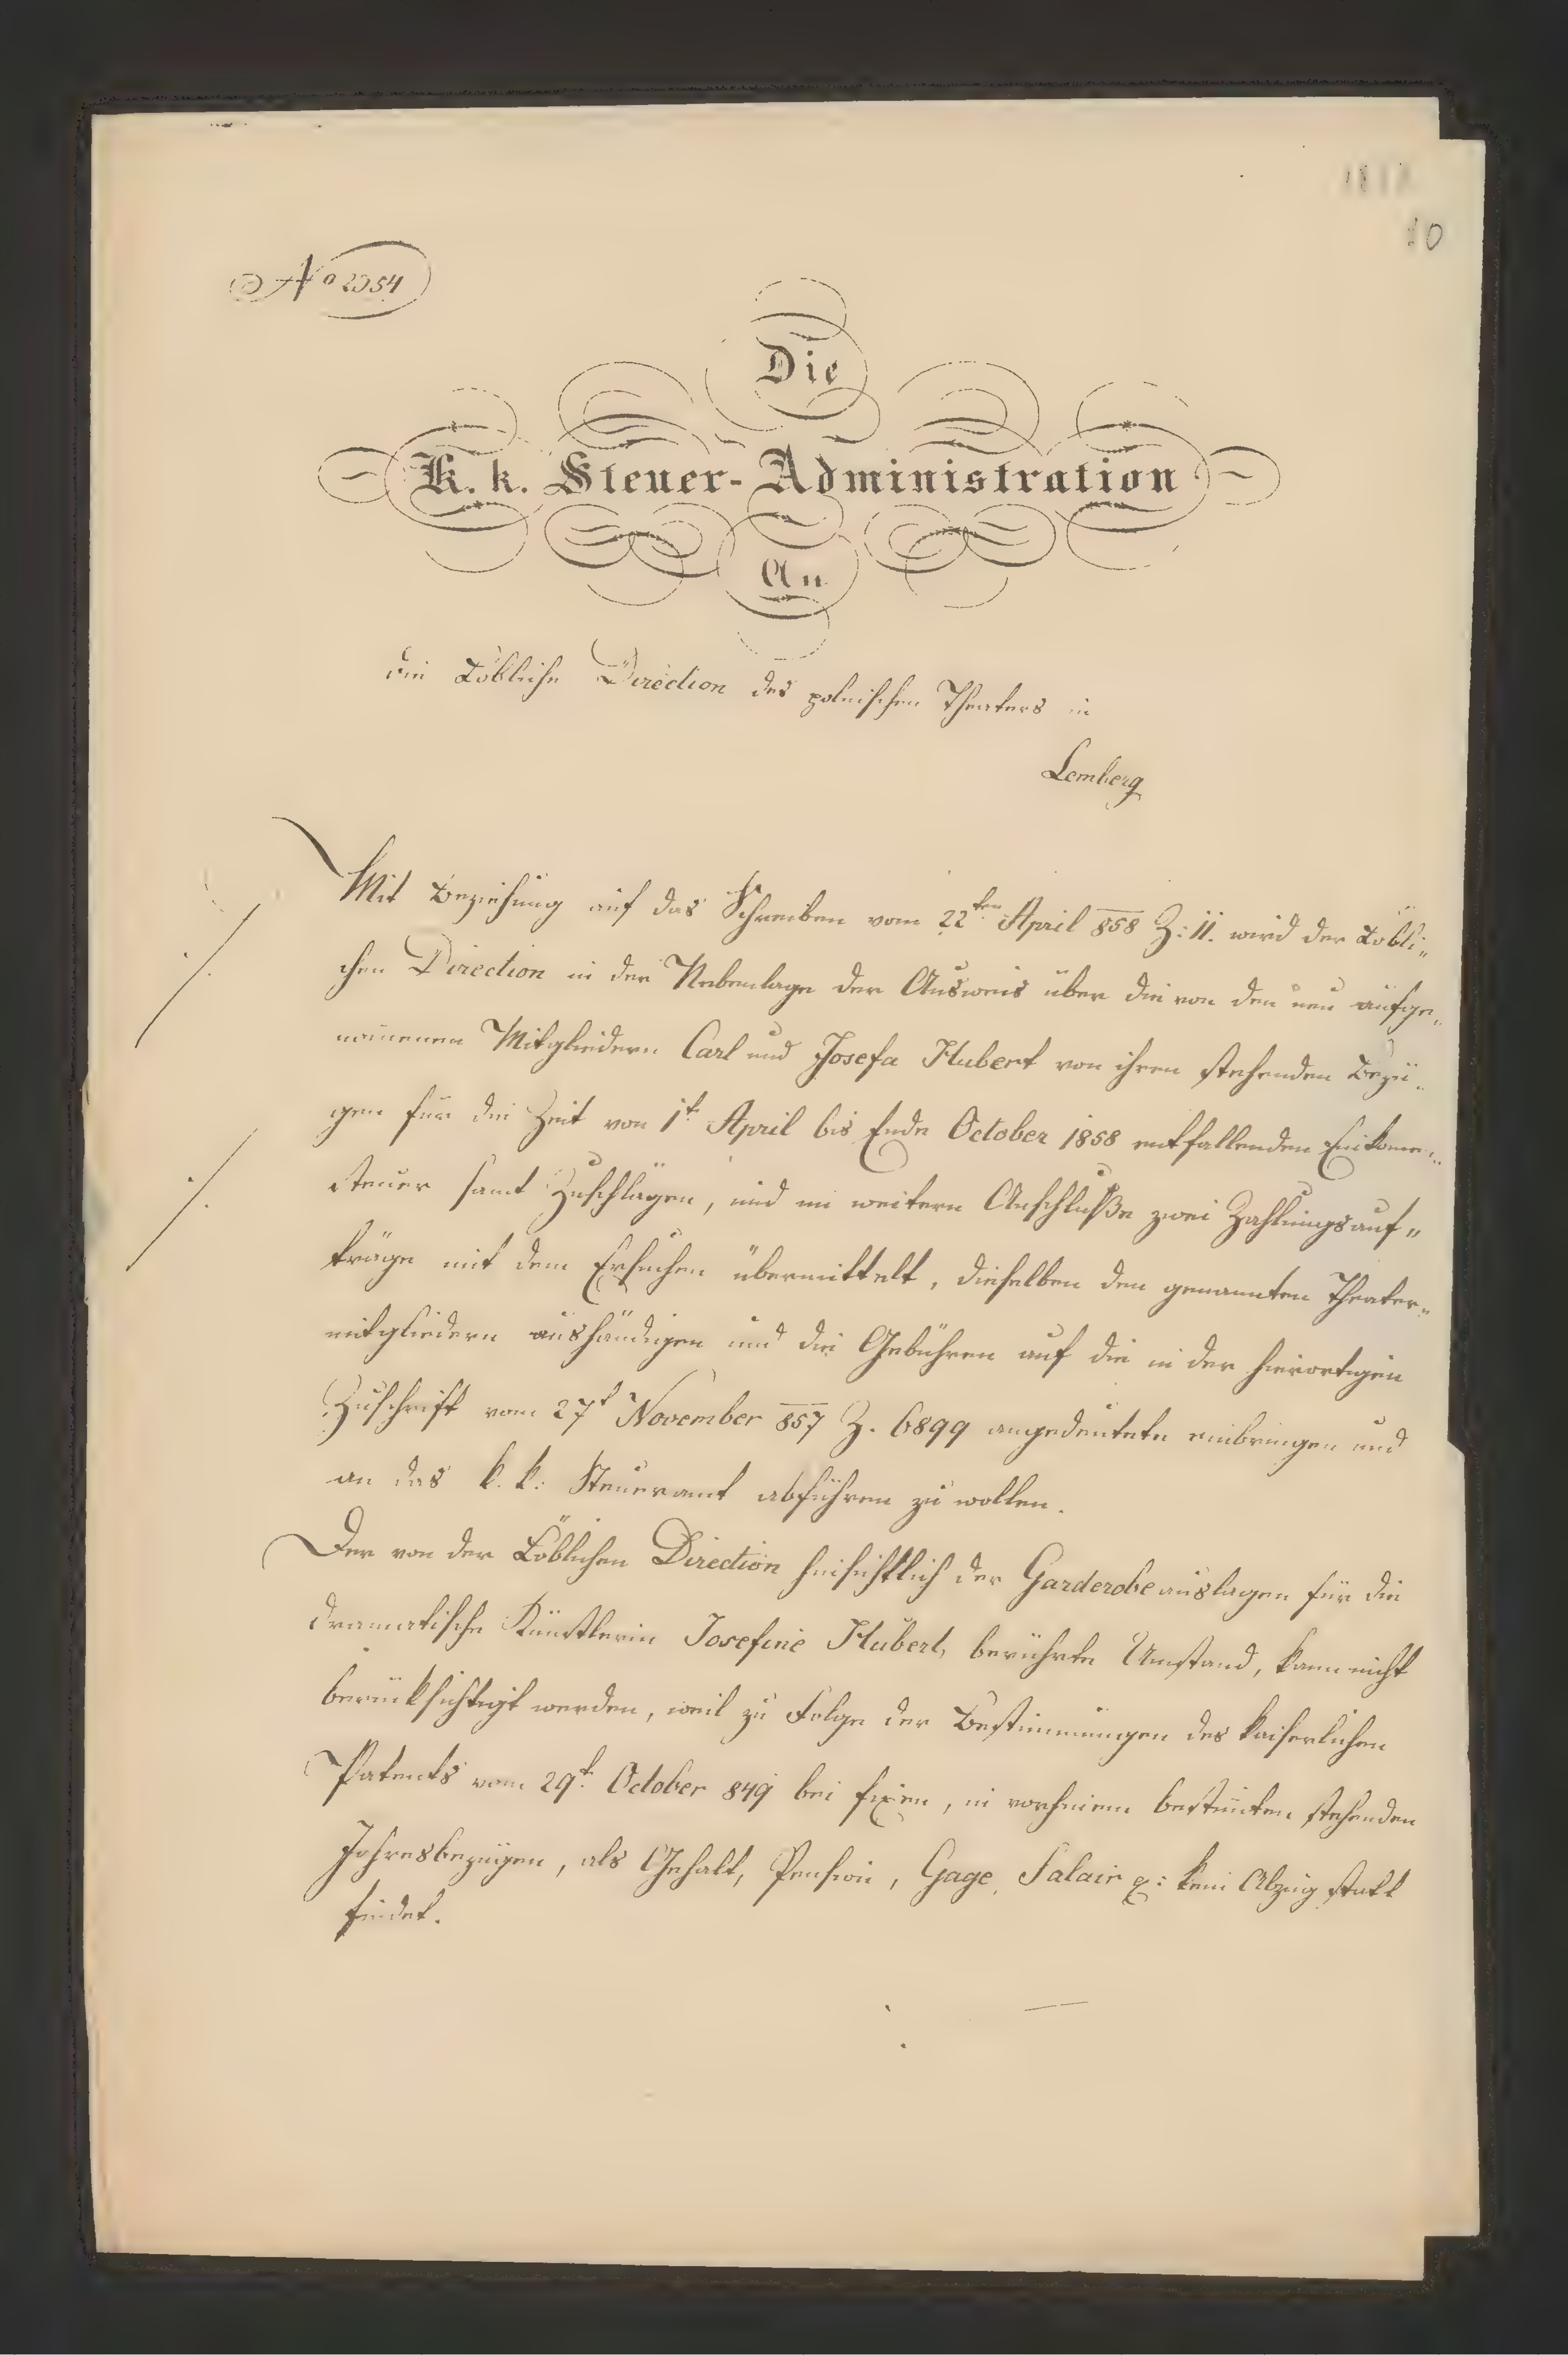 10
No 2354
Die
K. k. Steuer-Administration
An
die Löbliche Direction des polnischen Theaters in
Lemberg
Mit Beziehung auf das Schreiben vom 22ten April 858 Z: 11. wird der Löbli„
chen Direction in der Nebenlage der Ausweis über die von den neu aufge„
nom̅enen Mitgliedern Carl und Josefa Hubert von ihren stehenden Bezü„
gen für die Zeit von 1t April bis Ende October 1858 entfallenden Einkom̅en„
steuer samt Zuschlägen, und im weitern Anschluße zwei Zahlungsauf„
träge mit dem Ersuchen übermittelt, dieselben den genannten Theater„
mitgliedern aushändigen und die Gebühren auf die in der hierortigen
Zuschrift vom 27t November 857 Z. 6899 angedeutete einbringen und
an das k. k. Steueramt abführen zu wollen.
Der von der Löblichen Direction hinsichtlich der Garderobeauslagen für die
dramatische Künstlerin Josefine Hubert, berührte Umstand, kann nicht
berücksichtigt werden, weil zu Folge der Bestimmungen des kaiserlichen
Patents vom 29t October 849 bei fixen, in vorhinein bestim̅ten stehenden
Jahresbezügen, als Gehalt, Pension, Gage, Salair &: kein Abzug statt
findet.